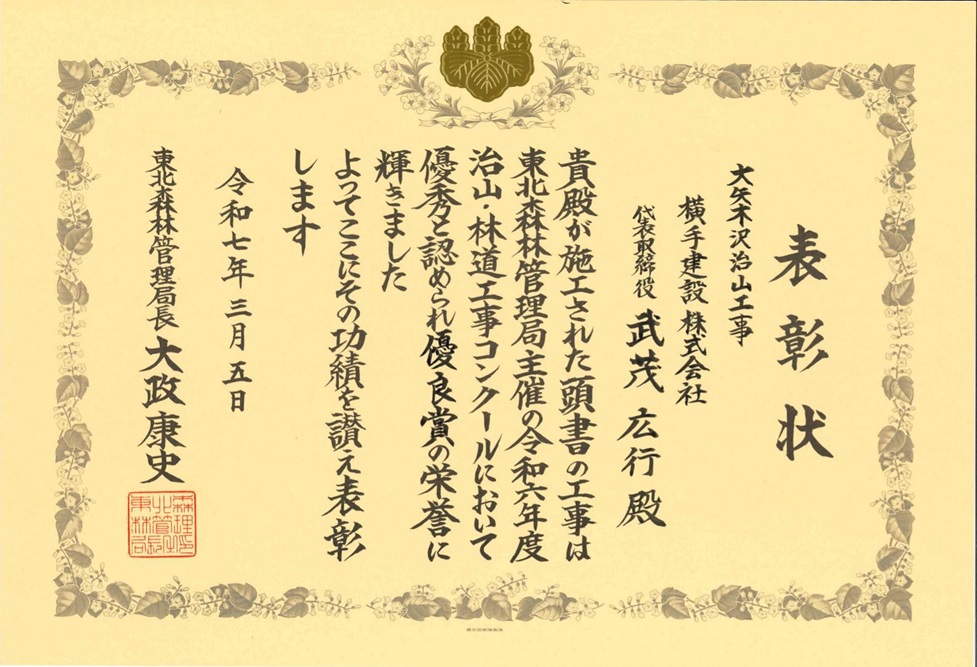 表彰状
大矢木沢治山工事
横手建設株式会社
代表取締役 武茂 広行 殿
貴殿が施工された頭書の工事は
東北森林管理局主催の令和六年度
治山・林道工事コンクールにおいて
優秀と認められ優良賞の栄誉に
輝きました
よってここにその功績を讃え表彰
します
令和七年三月五日
東北森林管理局長 大政康史